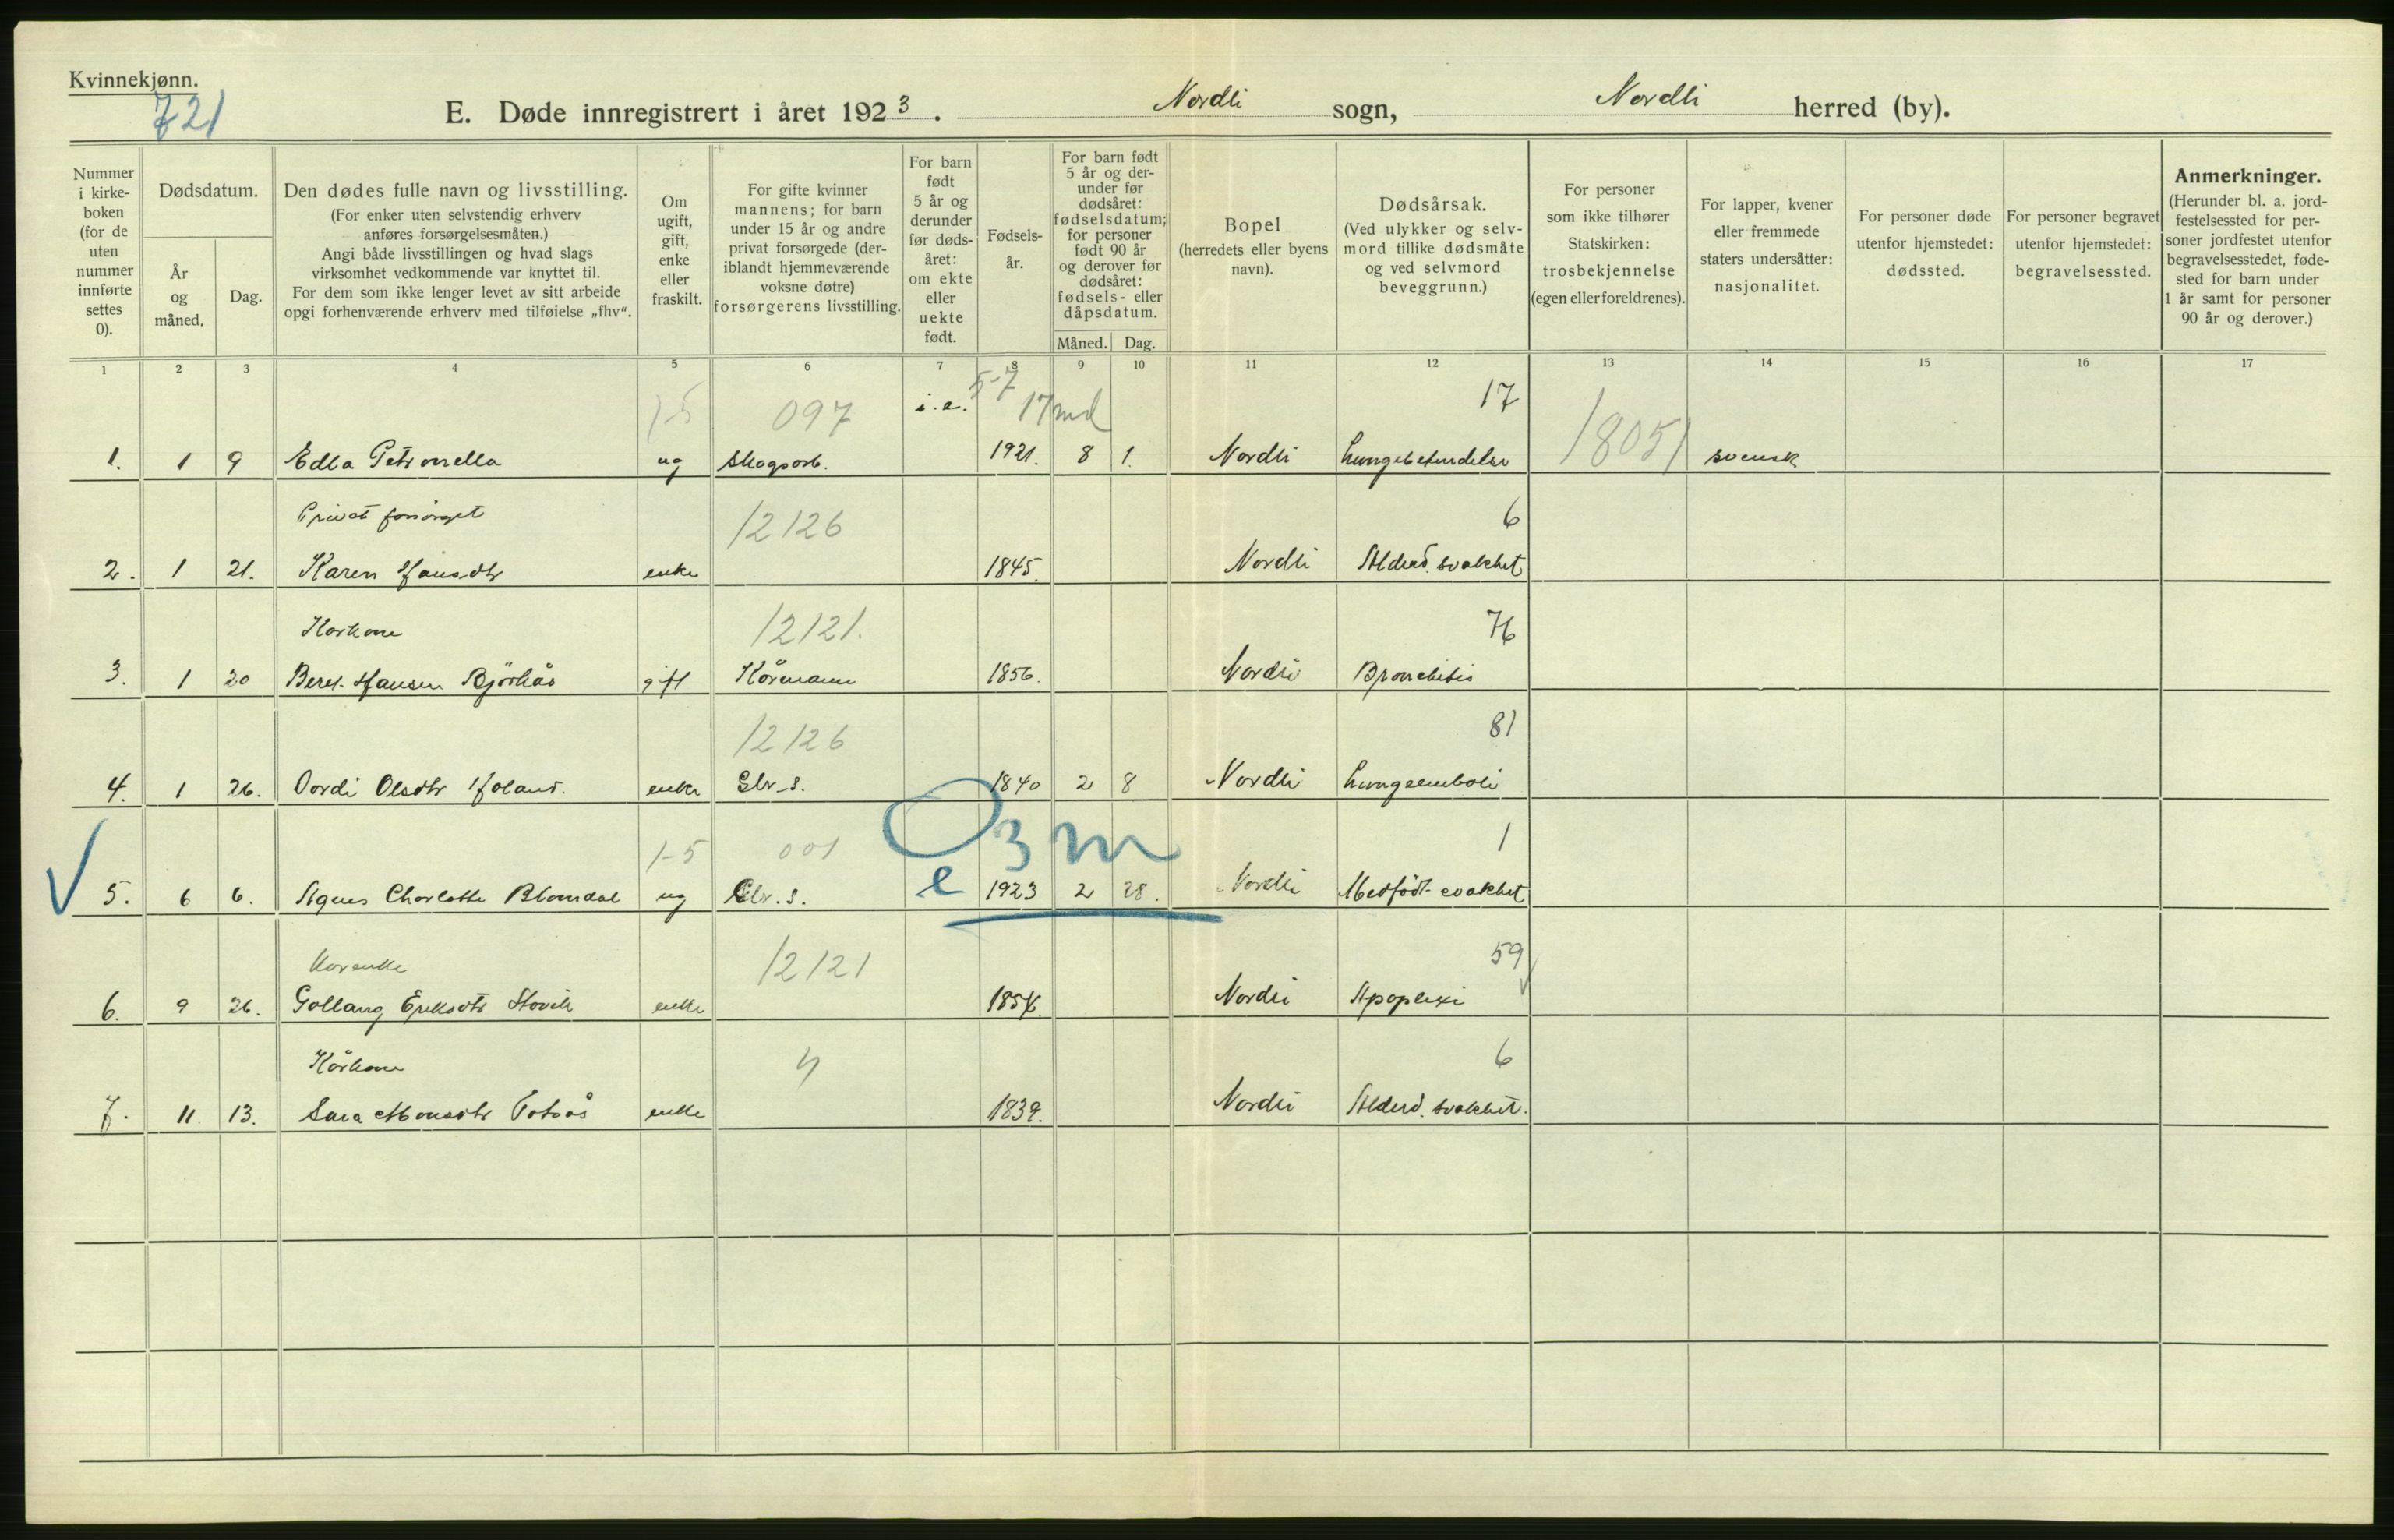 Kvinnekjønn.
721
E. Døde innregistrert i året 1923. Nordli sogn, Nordli herred (by).
Nummer i kirke- boken (for de uten nummer innførte settes 0).
Dødsdatum.
År og måned.
Dag.
Den dødes fulle navn og livsstilling.
(For enker uten selvstendig erhverv
anføres forsørgelsesmåten.)
Angi både livsstillingen og hvad slags
virksomhet vedkommende var knyttet til.
For dem som ikke lenger levet av sitt arbeide
opgi forhenværende erhverv med tilføielse „fhv“.
Om ugift, gift, enke eller fraskilt.
For gifte kvinner
mannens; for barn
under 15 år og andre
privat forsørgede (der-
iblandt hjemmeværende
voksne døtre)
forsørgerens livsstilling.
For barn født 5 år og derunder før døds- året: om ekte eller uekte født.
Fødsels- år.
For barn født
5 år og der-
under før
dødsåret:
fødselsdatum;
for personer
født 90 år
og derover før
dødsåret:
fødsels- eller
dåpsdatum.
Måned. Dag.
Bopel
(herredets eller byens
navn).
Dødsårsak.
(Ved ulykker og selv-
mord tillike dødsmåte
og ved selvmord
beveggrunn.)
For personer
som ikke tilhører
Statskirken:
trosbekjennelse
(egen eller foreldrenes).
For lapper, kvener
eller fremmede
staters undersåtter:
nasjonalitet.
For personer døde
utenfor hjemstedet:
dødssted.
For personer begravet
utenfor hjemstedet:
begravelsessted.
Anmerkninger.
(Herunder bl. a. jord-
festelsessted for per-
soner jordfestet utenfor
begravelsesstedet,føde-
sted for barn under
1 år samt for personer
90 år og derover.)
1 2 3 4 5 6 7 8 9 10 11 12 13 14 15 16 17
1-5 097 i.e. 5-7 17 md 17 18051
1. 1 9 Edla Petronella ug Skogsarb. 1921. 8 1. Nordli Lungebetendelse svensk
Privat forsørget 12126 6
2. 1 21. Karen Hansdtr enke 1845. Nordli Alderd. svakhet
Korkone 12121. 76
3. 1 20 Beret Hansen Bjørkås gift Kårmann 1856. Nordli Bronchitis
12126 81
4. 1 26. Dordi Olsdtr Holand. enke Gbr.s. 1840 2 8 Nordli Lungeemboli
1-5 001 0 3 m 1
5. 6 6. Agnes Charlotte Blomdal ug Gbr.s. e 1923 2 28. Nordli Medfødt svakhet
Korenke 12121 59
6. 9 26. Gollaug Eriksdtr Storik enke Nordli Apoplexi
Kårkone 4 6
7. 11. 13. Sara Monsdtr Totsås enke 1839. Nordli Alderd. svakhet.